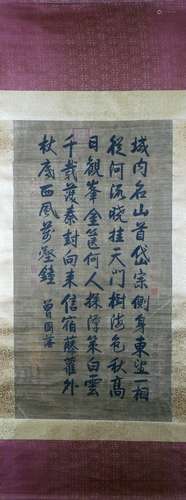 域内名山首岱宗側身東望一相
從河流曉挂天門樹海色秋高
日觀峯金篋何人探漢策白雲
千載護秦封向來信宿藤蘿外
杖底西風萬壑鐘
曾國藩